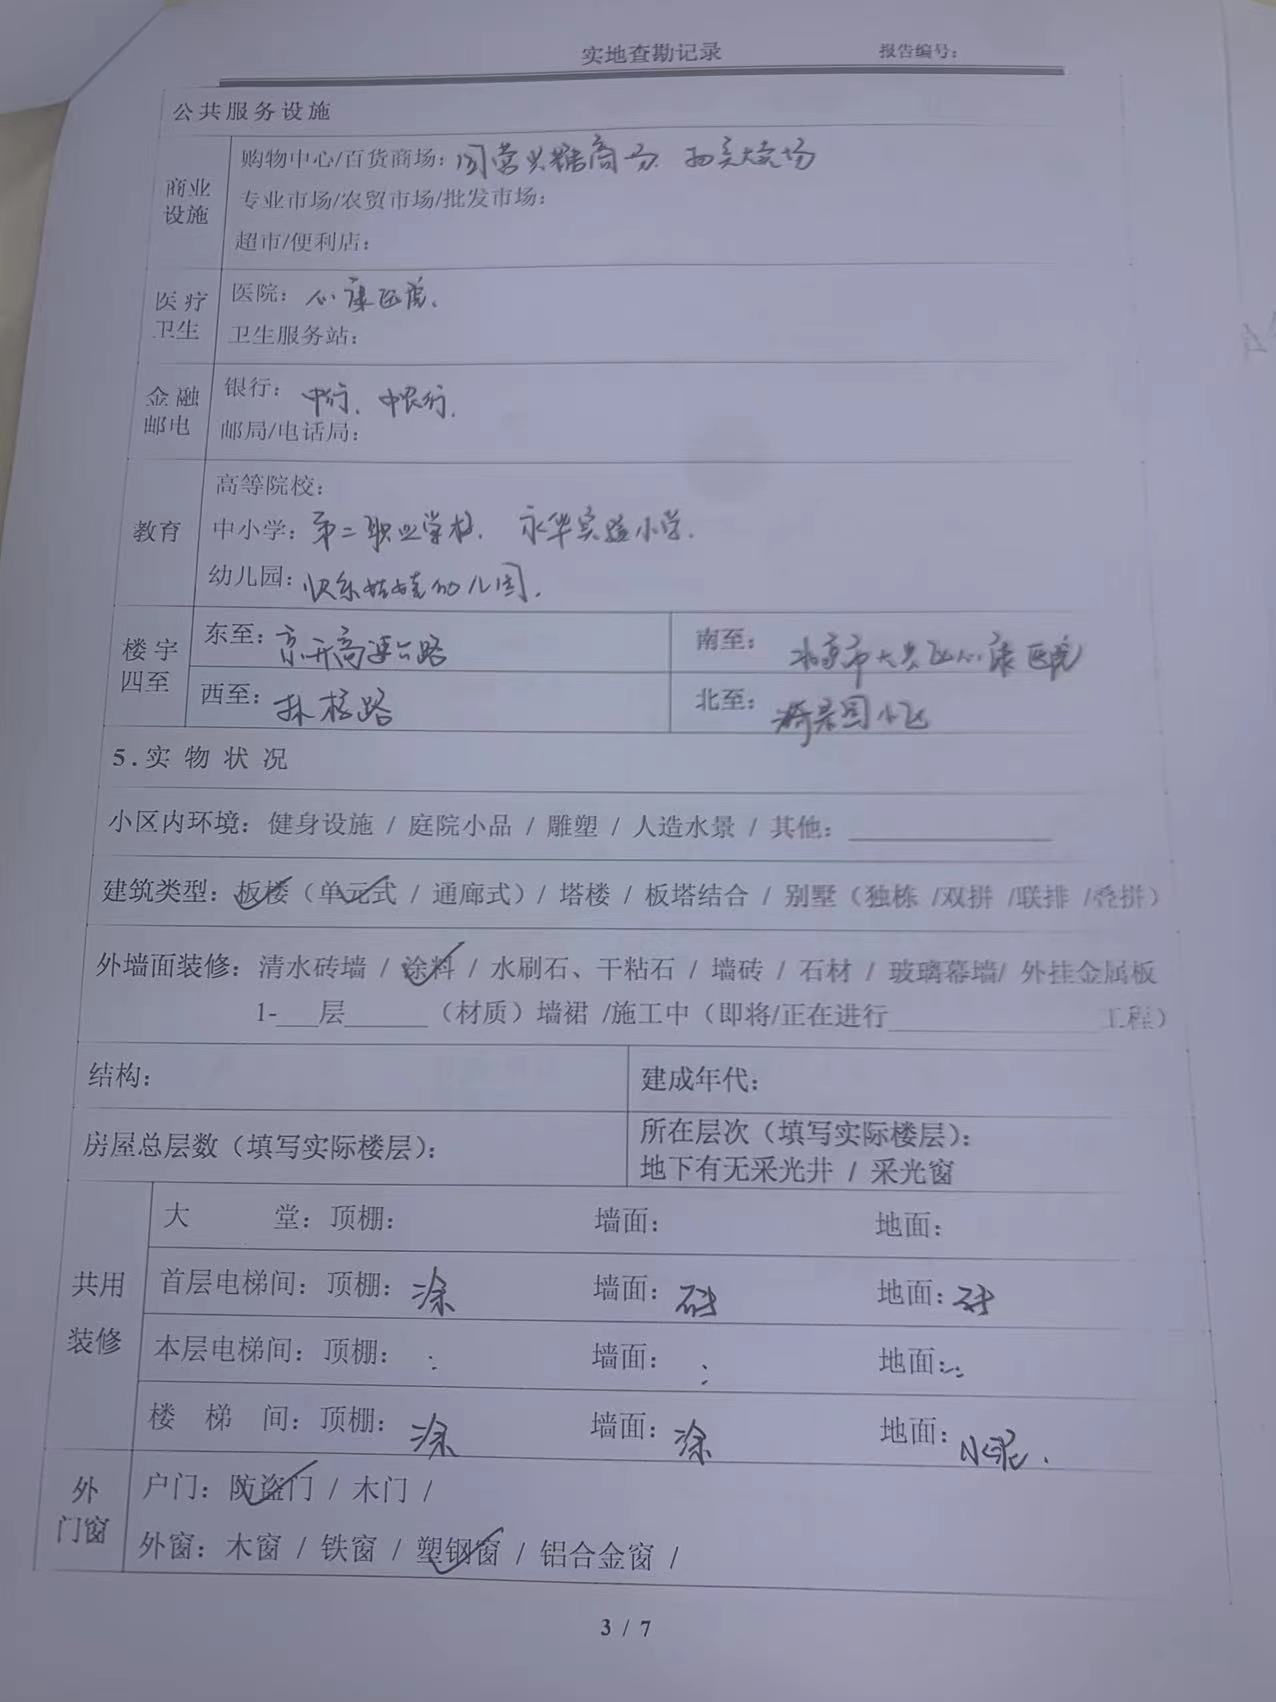 实地查勘记录 报告编号：
公共服务设施
商业设施
购物中心/百货商场：国营兴糖商场、物美大卖场
专业市场/农贸市场/批发市场：
超市/便利店：
医疗卫生
医院：心康医院、
卫生服务站：
金融邮电
银行：中行、中农行、
邮局/电话局：
教育
高等院校：
中小学：第二职业学校、永华实验小学、
幼儿园：快乐娃娃幼儿园、
楼宇四至
东至：京开高速公路 南至：北京市大兴区心康医院
西至：林校路 北至：绮景园小区
5.实物状况
小区内环境：健身设施 / 庭院小品 / 雕塑 / 人造水景 / 其他：
建筑类型：板楼（单元式 / 通廊式）/ 塔楼 / 板塔结合 / 别墅（独栋 /双拼 /联排 /叠拼）
外墙面装修：清水砖墙 / 涂料 / 水刷石、干粘石 / 墙砖 / 石材 / 玻璃幕墙/ 外挂金属板
1-___层______（材质）墙裙 /施工中（即将/正在进行______________工程）
结构： 建成年代：
房屋总层数（填写实际楼层）： 所在层次（填写实际楼层）：
地下有无采光井 / 采光窗
共用装修
大堂：顶棚： 墙面： 地面：
首层电梯间：顶棚：涂 墙面：砖 地面：砖
本层电梯间：顶棚： 墙面： 地面：
楼梯间：顶棚：涂 墙面：涂 地面：水泥.
外门窗
户门：防盗门 / 木门 /
外窗：木窗 / 铁窗 / 塑钢窗 / 铝合金窗 /
3 / 7